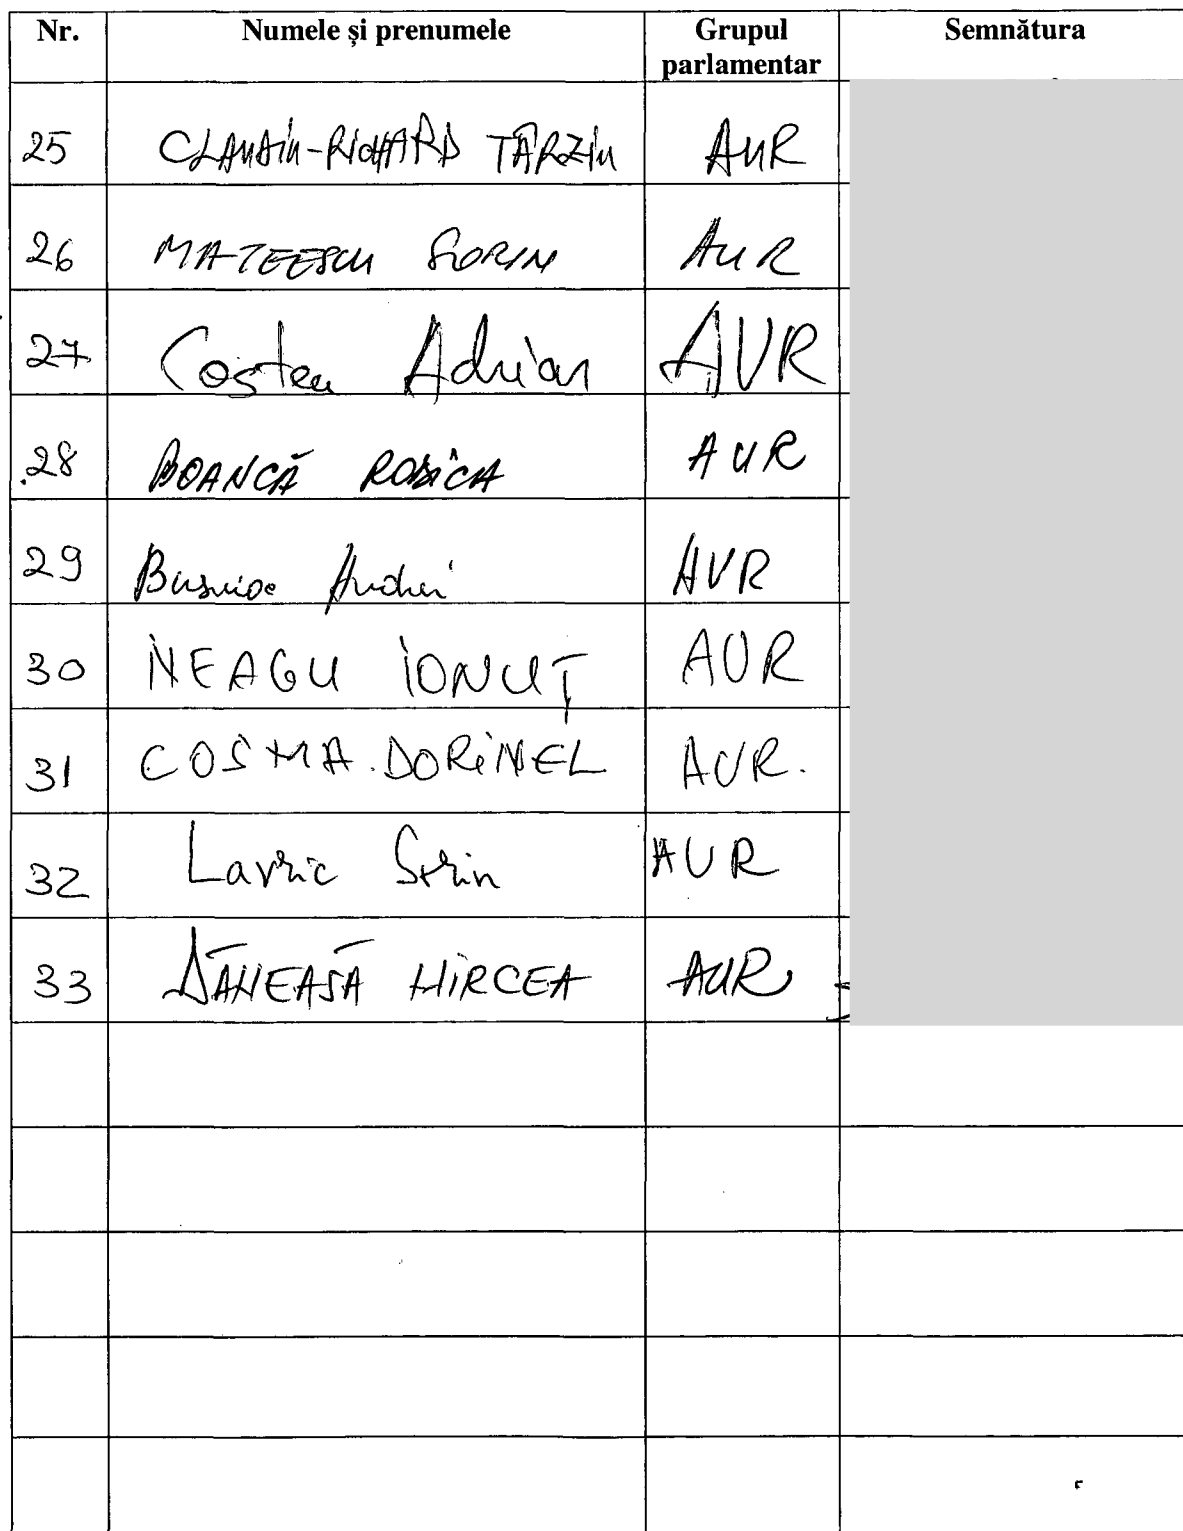 Nr. Numele și prenumele Grupul parlamentar Semnătura
25 CLAUDIU-RICHARD TÂRZIU AUR
26 MATEESCU SORIN AUR
27 Costea Adrian AUR
28 BOANCĂ RODICA AUR
29 Busuioc Andrei AUR
30 NEAGU IONUȚ AUR
31 COSMA DORINEL AUR.
32 Lavric Sorin AUR
33 DĂNEASĂ MIRCEA AUR